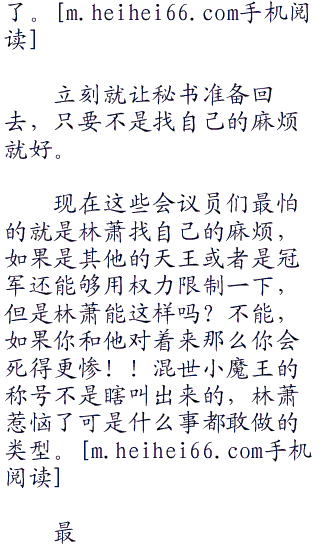 了。[m.heihei66.com手机阅
读]
立刻就让秘书准备回
去，只要不是找自己的麻烦
就好。
现在这些会议员们最怕
的就是林萧找自己的麻烦，
如果是其他的天王或者是冠
军还能够用权力限制一下，
但是林萧能这样吗？不能，
如果你和他对着来那么你会
死得更惨！！混世小魔王的
称号不是瞎叫出来的，林萧
惹恼了可是什么事都敢做的
类型。[m.heihei66.com手机
阅读]
最